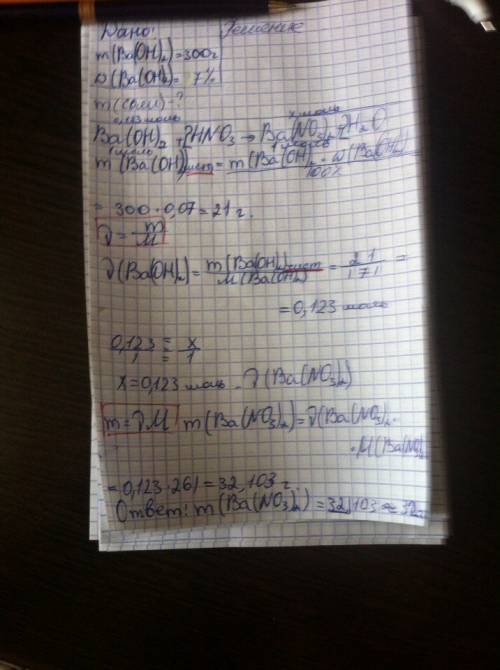 Дано:
Решение
m(Ba(OH)₂)=300г
ω(Ba(OH)₂)= 7%
m(соли)-?
0,123 моль x моль
Ba(OH)₂ + 2HNO₃ → Ba(NO₃)₂ + 2H₂O
1 моль 1 моль
m(Ba(OH)₂)чист = m(Ba(OH)₂ · ω(Ba(OH)₂)
100%
= 300 · 0,07 = 21 г.
ν = m
M
ν(Ba(OH)₂) = m(Ba(OH)₂)чист = 21 =
M(Ba(OH)₂) 171
= 0,123 моль
0,123 = x
1 = 1
x = 0,123 моль - ν(Ba(NO₃)₂)
m=ν.M m(Ba(NO₃)₂)=ν(Ba(NO₃)₂ ·
· M(Ba(NO₃)₂
= 0,123 · 261 = 32,103 г.
Ответ: m(Ba(NO₃)₂) = 32,103 ≈ 32